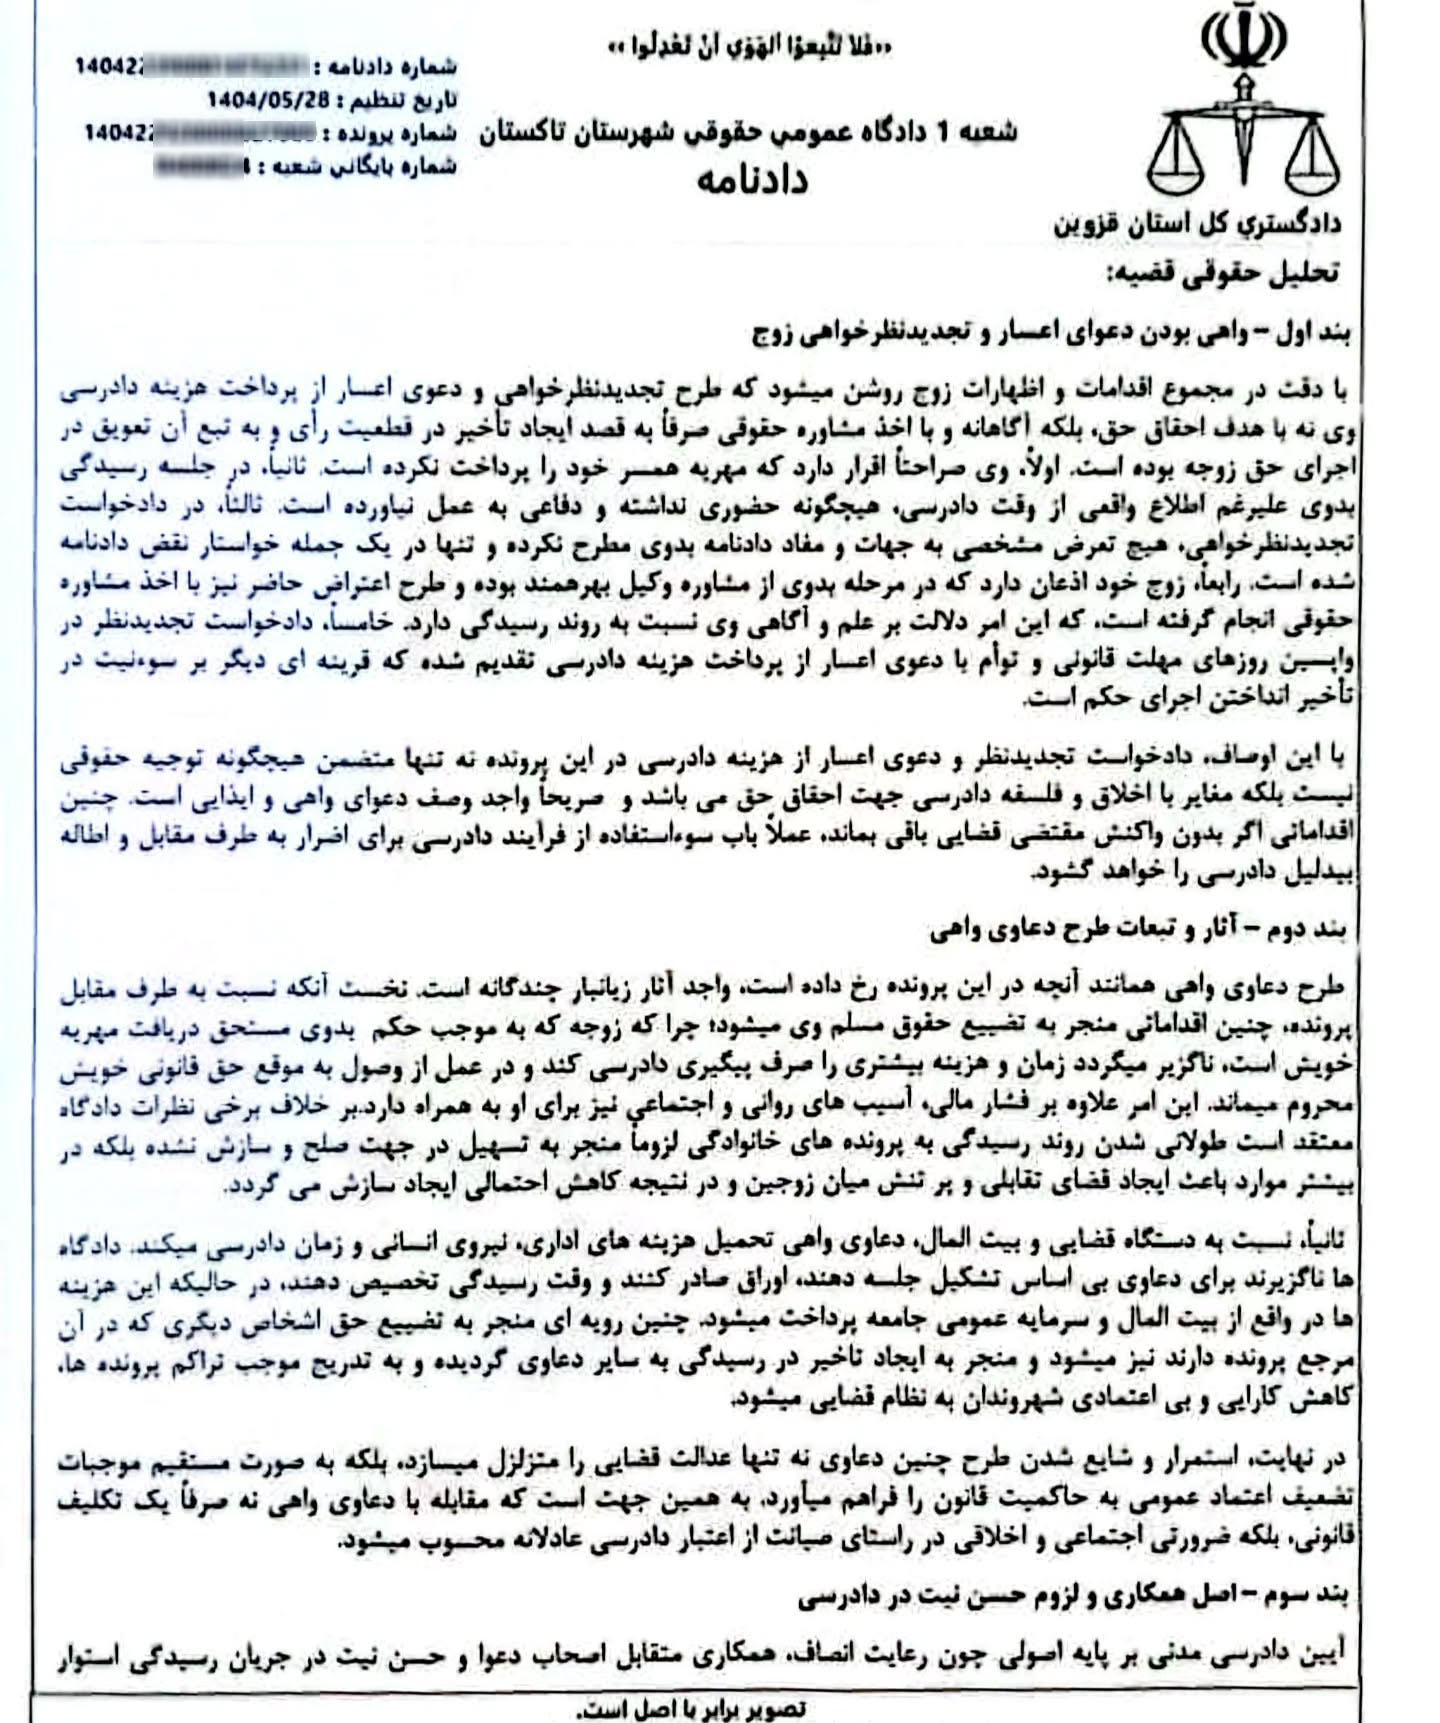 «فَلا تَتَّبِعوُا الهَوَي اَنْ تَعْدِلُوا»
شماره دادنامه : 140422
تاریخ تنظیم : 1404/05/28
شماره پرونده : 140422
شماره بایگانی شعبه :
شعبه 1 دادگاه عمومی حقوقی شهرستان تاکستان
دادنامه
دادگستري کل استان قزوین
تحلیل حقوقی قضیه:
بند اول – واهی بودن دعوای اعسار و تجدیدنظرخواهی زوج
با دقت در مجموع اقدامات و اظهارات زوج روشن میشود که طرح تجدیدنظرخواهی و دعوی اعسار از پرداخت هزینه دادرسی
وی نه با هدف احقاق حق، بلکه آگاهانه و با اخذ مشاوره حقوقی صرفاً به قصد ایجاد تأخیر در قطعیت رأی و به تبع آن تعویق در
اجرای حق زوجه بوده است. اولاً، وی صراحتاً اقرار دارد که مهریه همسر خود را پرداخت نکرده است. ثانیاً، در جلسه رسیدگی
بدوی علیرغم اطلاع واقعی از وقت دادرسی، هیچگونه حضوری نداشته و دفاعی به عمل نیاورده است. ثالثاً، در دادخواست
تجدیدنظرخواهی، هیچ تعرض مشخصی به جهات و مفاد دادنامه بدوی مطرح نکرده و تنها در یک جمله خواستار نقض دادنامه
شده است. رابعاً، زوج خود اذعان دارد که در مرحله بدوی از مشاوره وکیل بهرهمند بوده و طرح اعتراض حاضر نیز با اخذ مشاوره
حقوقی انجام گرفته است، که این امر دلالت بر علم و آگاهی وی نسبت به روند رسیدگی دارد. خامساً، دادخواست تجدیدنظر در
واپسین روزهای مهلت قانونی و توأم با دعوی اعسار از پرداخت هزینه دادرسی تقدیم شده که قرینه ای دیگر بر سوءنیت در
تأخیر انداختن اجرای حکم است.
با این اوصاف، دادخواست تجدیدنظر و دعوی اعسار از هزینه دادرسی در این پرونده نه تنها متضمن هیچگونه توجیه حقوقی
نیست بلکه مغایر با اخلاق و فلسفه دادرسی جهت احقاق حق می باشد و صریحاً واجد وصف دعوای واهی و ایذایی است. چنین
اقداماتی اگر بدون واکنش مقتضی قضایی باقی بماند، عملاً باب سوءاستفاده از فرآیند دادرسی برای اضرار به طرف مقابل و اطاله
بیدلیل دادرسی را خواهد گشود.
بند دوم – آثار و تبعات طرح دعاوی واهی
طرح دعاوی واهی همانند آنچه در این پرونده رخ داده است، واجد آثار زیانبار چندگانه است. نخست آنکه نسبت به طرف مقابل
پرونده، چنین اقداماتی منجر به تضییع حقوق مسلم وی میشود؛ چرا که زوجه که به موجب حکم بدوی مستحق دریافت مهریه
خویش است، ناگزیر میگردد زمان و هزینه بیشتری را صرف پیگیری دادرسی کند و در عمل از وصول به موقع حق قانونی خویش
محروم میماند. این امر علاوه بر فشار مالی، آسیب های روانی و اجتماعی نیز برای او به همراه دارد.بر خلاف برخی نظرات دادگاه
معتقد است طولانی شدن روند رسیدگی به پرونده های خانوادگی لزوماً منجر به تسهیل در جهت صلح و سازش نشده بلکه در
بیشتر موارد باعث ایجاد فضای تقابلی و پر تنش میان زوجین و در نتیجه کاهش احتمالی ایجاد سازش می گردد.
ثانیاً، نسبت به دستگاه قضایی و بیت المال، دعاوی واهی تحمیل هزینه های اداری، نیروی انسانی و زمان دادرسی میکند. دادگاه
ها ناگزیرند برای دعاوی بی اساس تشکیل جلسه دهند، اوراق صادر کنند و وقت رسیدگی تخصیص دهند، در حالیکه این هزینه
ها در واقع از بیت المال و سرمایه عمومی جامعه پرداخت میشود. چنین رویه ای منجر به تضییع حق اشخاص دیگری که در آن
مرجع پرونده دارند نیز میشود و منجر به ایجاد تاخیر در رسیدگی به سایر دعاوی گردیده و به تدریج موجب تراکم پرونده ها،
کاهش کارایی و بی اعتمادی شهروندان به نظام قضایی میشود.
در نهایت، استمرار و شایع شدن طرح چنین دعاوی نه تنها عدالت قضایی را متزلزل میسازد، بلکه به صورت مستقیم موجبات
تضعیف اعتماد عمومی به حاکمیت قانون را فراهم میآورد. به همین جهت است که مقابله با دعاوی واهی نه صرفاً یک تکلیف
قانونی، بلکه ضرورتی اجتماعی و اخلاقی در راستای صیانت از اعتبار دادرسی عادلانه محسوب میشود.
بند سوم – اصل همکاری و لزوم حسن نیت در دادرسی
آیین دادرسی مدنی بر پایه اصولی چون رعایت انصاف، همکاری متقابل اصحاب دعوا و حسن نیت در جریان رسیدگی استوار
تصویر برابر با اصل است.